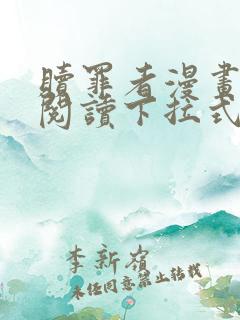 贖罪者漫畫
閱讀下拉式
李新嶺
未经同意禁止转载